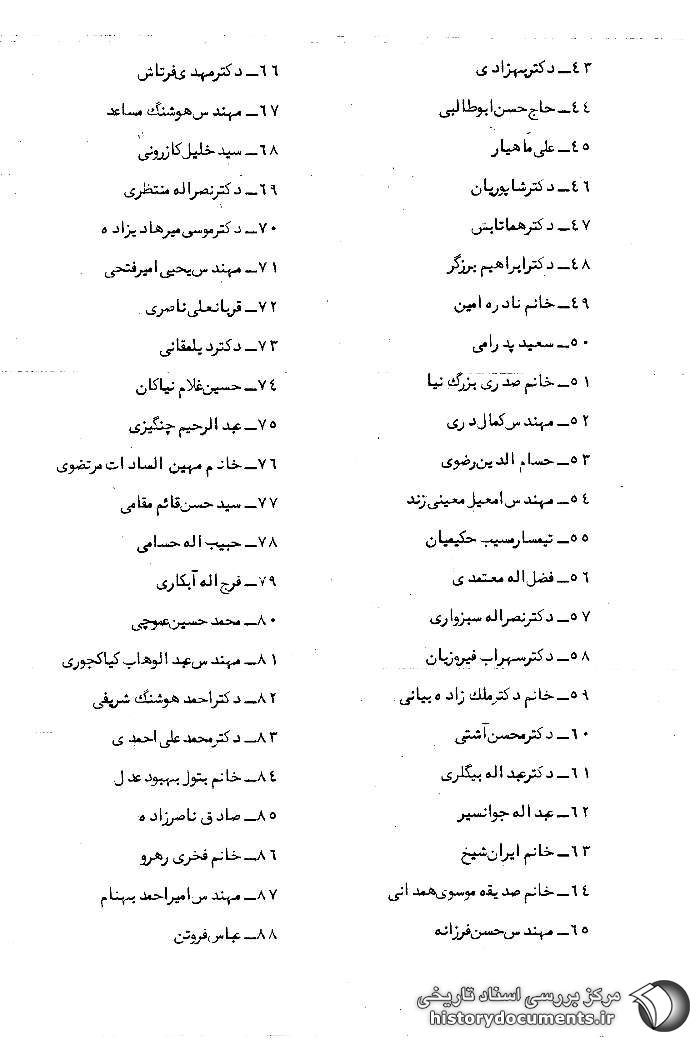 ٤٣ــ دکتربهزادی
٤٤ــ حاج حسن ابوطالبی
٤٥ــ علی ماهیار
٤٦ــ دکترشاپوریان
٤٧ــ دکترهماتابش
٤٨ــ دکترابراهیم برزگر
٤٩ــ خانم نادره امین
٥٠ــ سعید پدرامی
٥١ــ خانم صدری بزرگ نیا
٥٢ــ مهندس کمال دری
٥٣ــ حسام الدین رضوی
٥٤ــ مهندس امعیل معینی زند
٥٥ــ تیمسارمسیب حکیمیان
٥٦ــ فضل اله معتمدی
٥٧ــ دکترنصراله سبزواری
٥٨ــ دکترسهراب فیروزیان
٥٩ــ خانم دکترملک زاده بیانی
٦٠ــ دکترمحسن آشتی
٦١ــ دکترعبداله بیگلری
٦٢ــ عبداله جوانسیر
٦٣ــ خانم ایران شیخ
٦٤ــ خانم صدیقه موسوی همدانی
٦٥ــ مهندس حسن فرزانه
٦٦ــ دکترمهدی فرتاش
٦٧ــ مهندس هوشنگ مساعد
٦٨ــ سید خلیل کازرونی
٦٩ــ دکترنصراله منتظری
٧٠ــ دکترموسی میرهادیزاده
٧١ــ مهندس یحیی امیرفتحی
٧٢ــ قربانعلی ناصری
٧٣ــ دکتردیلمقانی
٧٤ــ حسین غلام نیاکان
٧٥ــ عبدالرحیم چنگیزی
٧٦ــ خانم مهین السادات مرتضوی
٧٧ــ سید حسن قائم مقامی
٧٨ــ حبیب اله حسامی
٧٩ــ فرج اله آبکاری
٨٠ــ محمد حسین عموچی
٨١ــ مهندس عبدالوهاب کیاکجوری
٨٢ــ دکتراحمد هوشنگ شریفی
٨٣ــ دکترمحمدعلی احمدی
٨٤ــ خانم بتول بهبودعدل
٨٥ــ صادق ناصرزاده
٨٦ــ خانم فخری رهرو
٨٧ــ مهندس امیراحمد بهنام
٨٨ــ عباس فروتن
مرکز بررسی اسناد تاریخی
historydocuments.ir